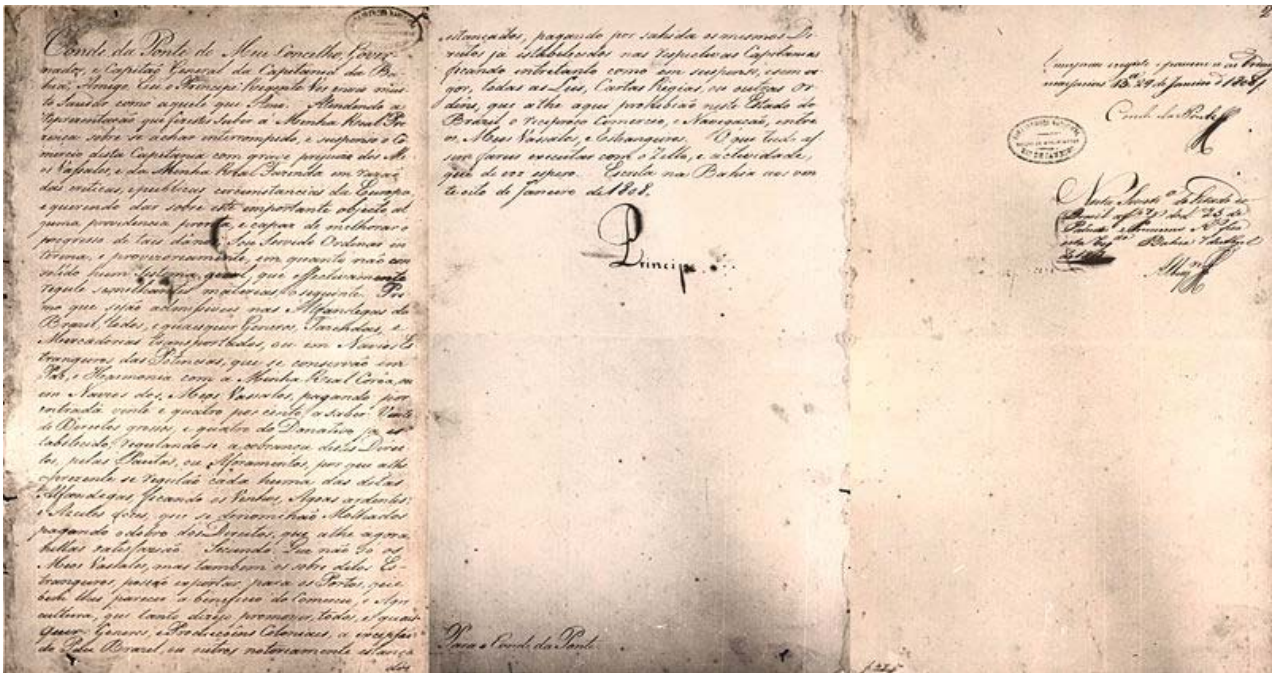 Conde da Ponte do Meu Concelho, Gover-
nador, e Capitaõ General da Capitania da Ba-
hia; Amigo. Eu o Principe Regente vos envio mui-
to Saudar como aquele que Amo. Attendendo a
representaçaõ que fizestes subir a Minha Real Pre-
zença sobre se achar interrompido, e suspenso o Co-
mercio desta Capitania com grave prejuizo dos Me-
os Vassalos, e da Minha Real Fazenda em razaõ
das criticas, e publicas circunstancias da Europa,
e querendo dar sobre este importante objecto al-
guma providencia pronta, e capaz de melhorar o
progresso de taes danos: Sou Servido Ordenar in-
terina, e provizoriamente, em quanto naõ con-
solido hum Systema geral, que effectivamente
regule semelhantes materias, o seguinte. Pri-
mo que sejaõ admissiveis nas Alfandegas do
Brazil, todos, e quaesquer Generos, Fazendas, e
Mercadorias transportadas, ou em Navios Es-
trangeiros das Potencias, que se conservaõ em
Paz, e Harmonia com a Minha Real Coroa, ou
em Navios dos Meos Vassalos, pagando por
entrada vinte e quatro por cento; a saber: Vinte
de Direitos grossos, e quatro do Donativo ja es-
tabelecido, regulando-se a cobrança destes Direi-
tos, pelas Pautas, ou Aforamentos, por que athe
o prezente se regulaõ cada huma das ditas
Alfandegas, ficando os Vinhos, Agoas ardentes,
e Azeites doces, que se denominaõ Molhados
pagando o dobro dos Direitos, que athe agora
nellas satisfaziaõ. Secundo: Que naõ só os
Meos Vassalos, mas tambem os sobre ditos Es-
trangeiros, possaõ exportar para os Portos, que
bem lhes parecer a beneficio do Comercio, e Agri-
cultura, que tanto dezejo promover, todos, e quaes-
quer Generos, e Producçoens Coloniaes, a excepçaõ
do Páu Brazil, ou outros notoriamente estanca-
dos
estancados, pagando por sahida os mesmos Di-
reitos já estabelecidos nas respectivas Capitanias
ficando entretanto como em suspenso, e sem vi-
gor, todas as Leis, Cartas Regias, ou outras Or-
dens, que athe aqui prohibiaõ neste Estado do
Brazil o reciproco Comercio, e Navegaçaõ, entre
os Meos Vassalos, e Estrangeiros. O que tudo as-
sim fareis executar com o Zello, e actividade,
que de vos espero. Escrita na Bahia aos vin-
te oito de Janeiro de 1808.
Principe
Para o Conde da Ponte
2
29 de Janeiro d 1808
Conde da Ponte
Bahia